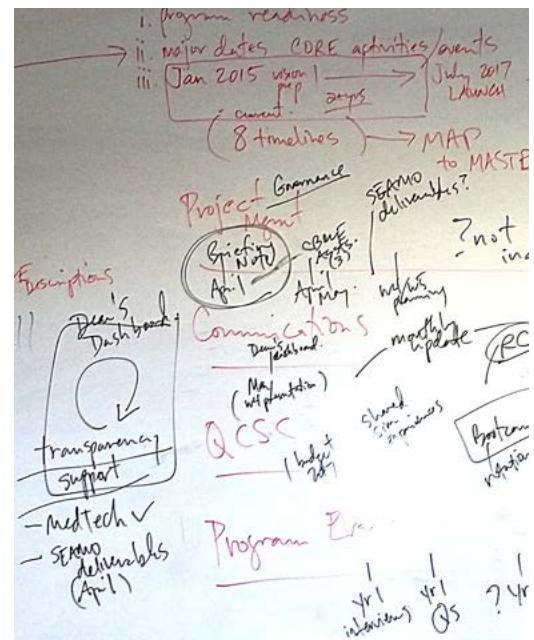 i. program readiness
ii. major dates CORE activities/events
iii. Jan 2015 vision prep
2 yrs
July 2017
LAUNCH
current
(8 timelines) → MAP
to MASTE
Project Mgmt
Governance
SEAMO
deliverables?
Briefing
Note
April
CBME
April
May
planning
? not
in
Descriptions
Dean's
Dashboard
transparency
support
- MedTech ✓
- SEAMO
deliverables
(April)
Communications
Dean's
dashboard
(May
presentation)
monthly
update
QCSC
budget
shared
sim
experiences
Bootcam
Program Eva
yr 1
interviews
yr 1
QS
? yr